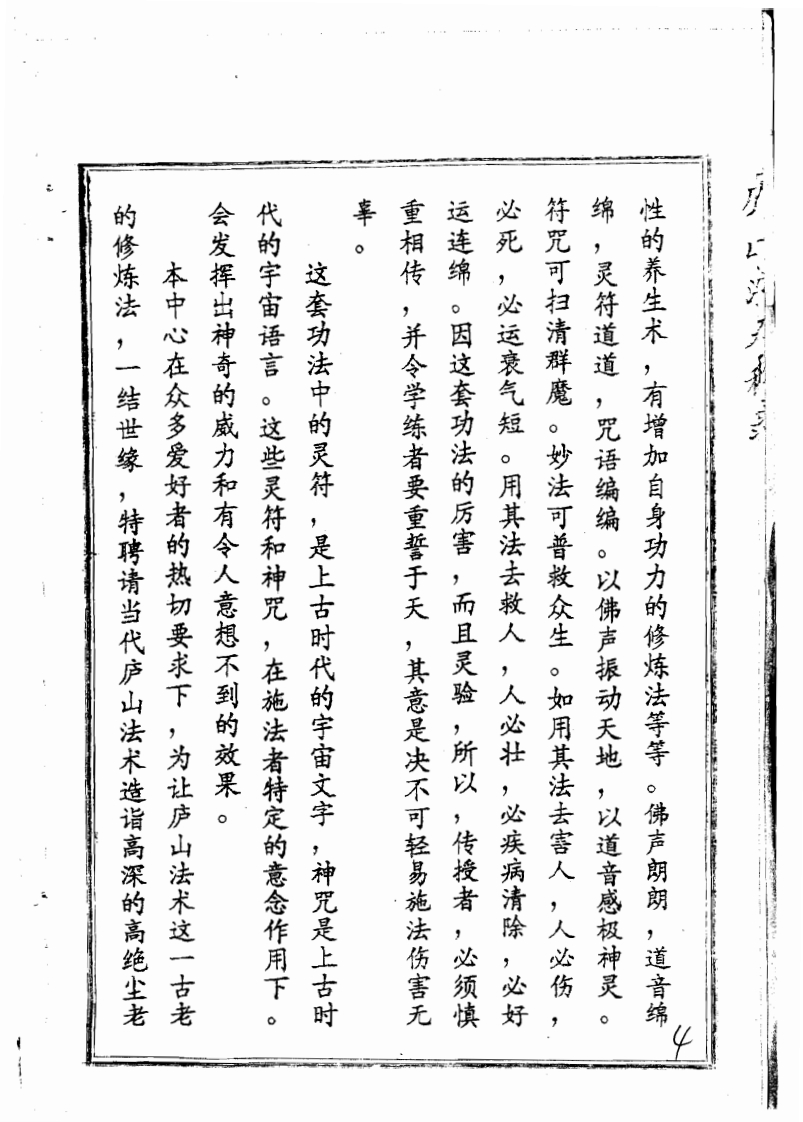 性的养生术，有增加自身功力的修炼法等等。佛声朗朗，道音绵
绵，灵符道道，咒语编编。以佛声振动天地，以道音感极神灵。
符咒可扫清群魔。妙法可普救众生。如用其法去害人，人必伤，
必死，必运衰气短。用其法去救人，人必壮，必疾病清除，必好
运连绵。因这套功法的厉害，而且灵验，所以，传授者，必须慎
重相传，并令学练者要重誓于天，其意是决不可轻易施法伤害无
辜。
这套功法中的灵符，是上古时代的宇宙文字，神咒是上古时
代的宇宙语言。这些灵符和神咒，在施法者特定的意念作用下。
会发挥出神奇的威力和有令人意想不到的效果。
本中心在众多爱好者的热切要求下，为让庐山法术这一古老
的修炼法，一结世缘，特聘请当代庐山法术造诣高深的高绝尘老
4